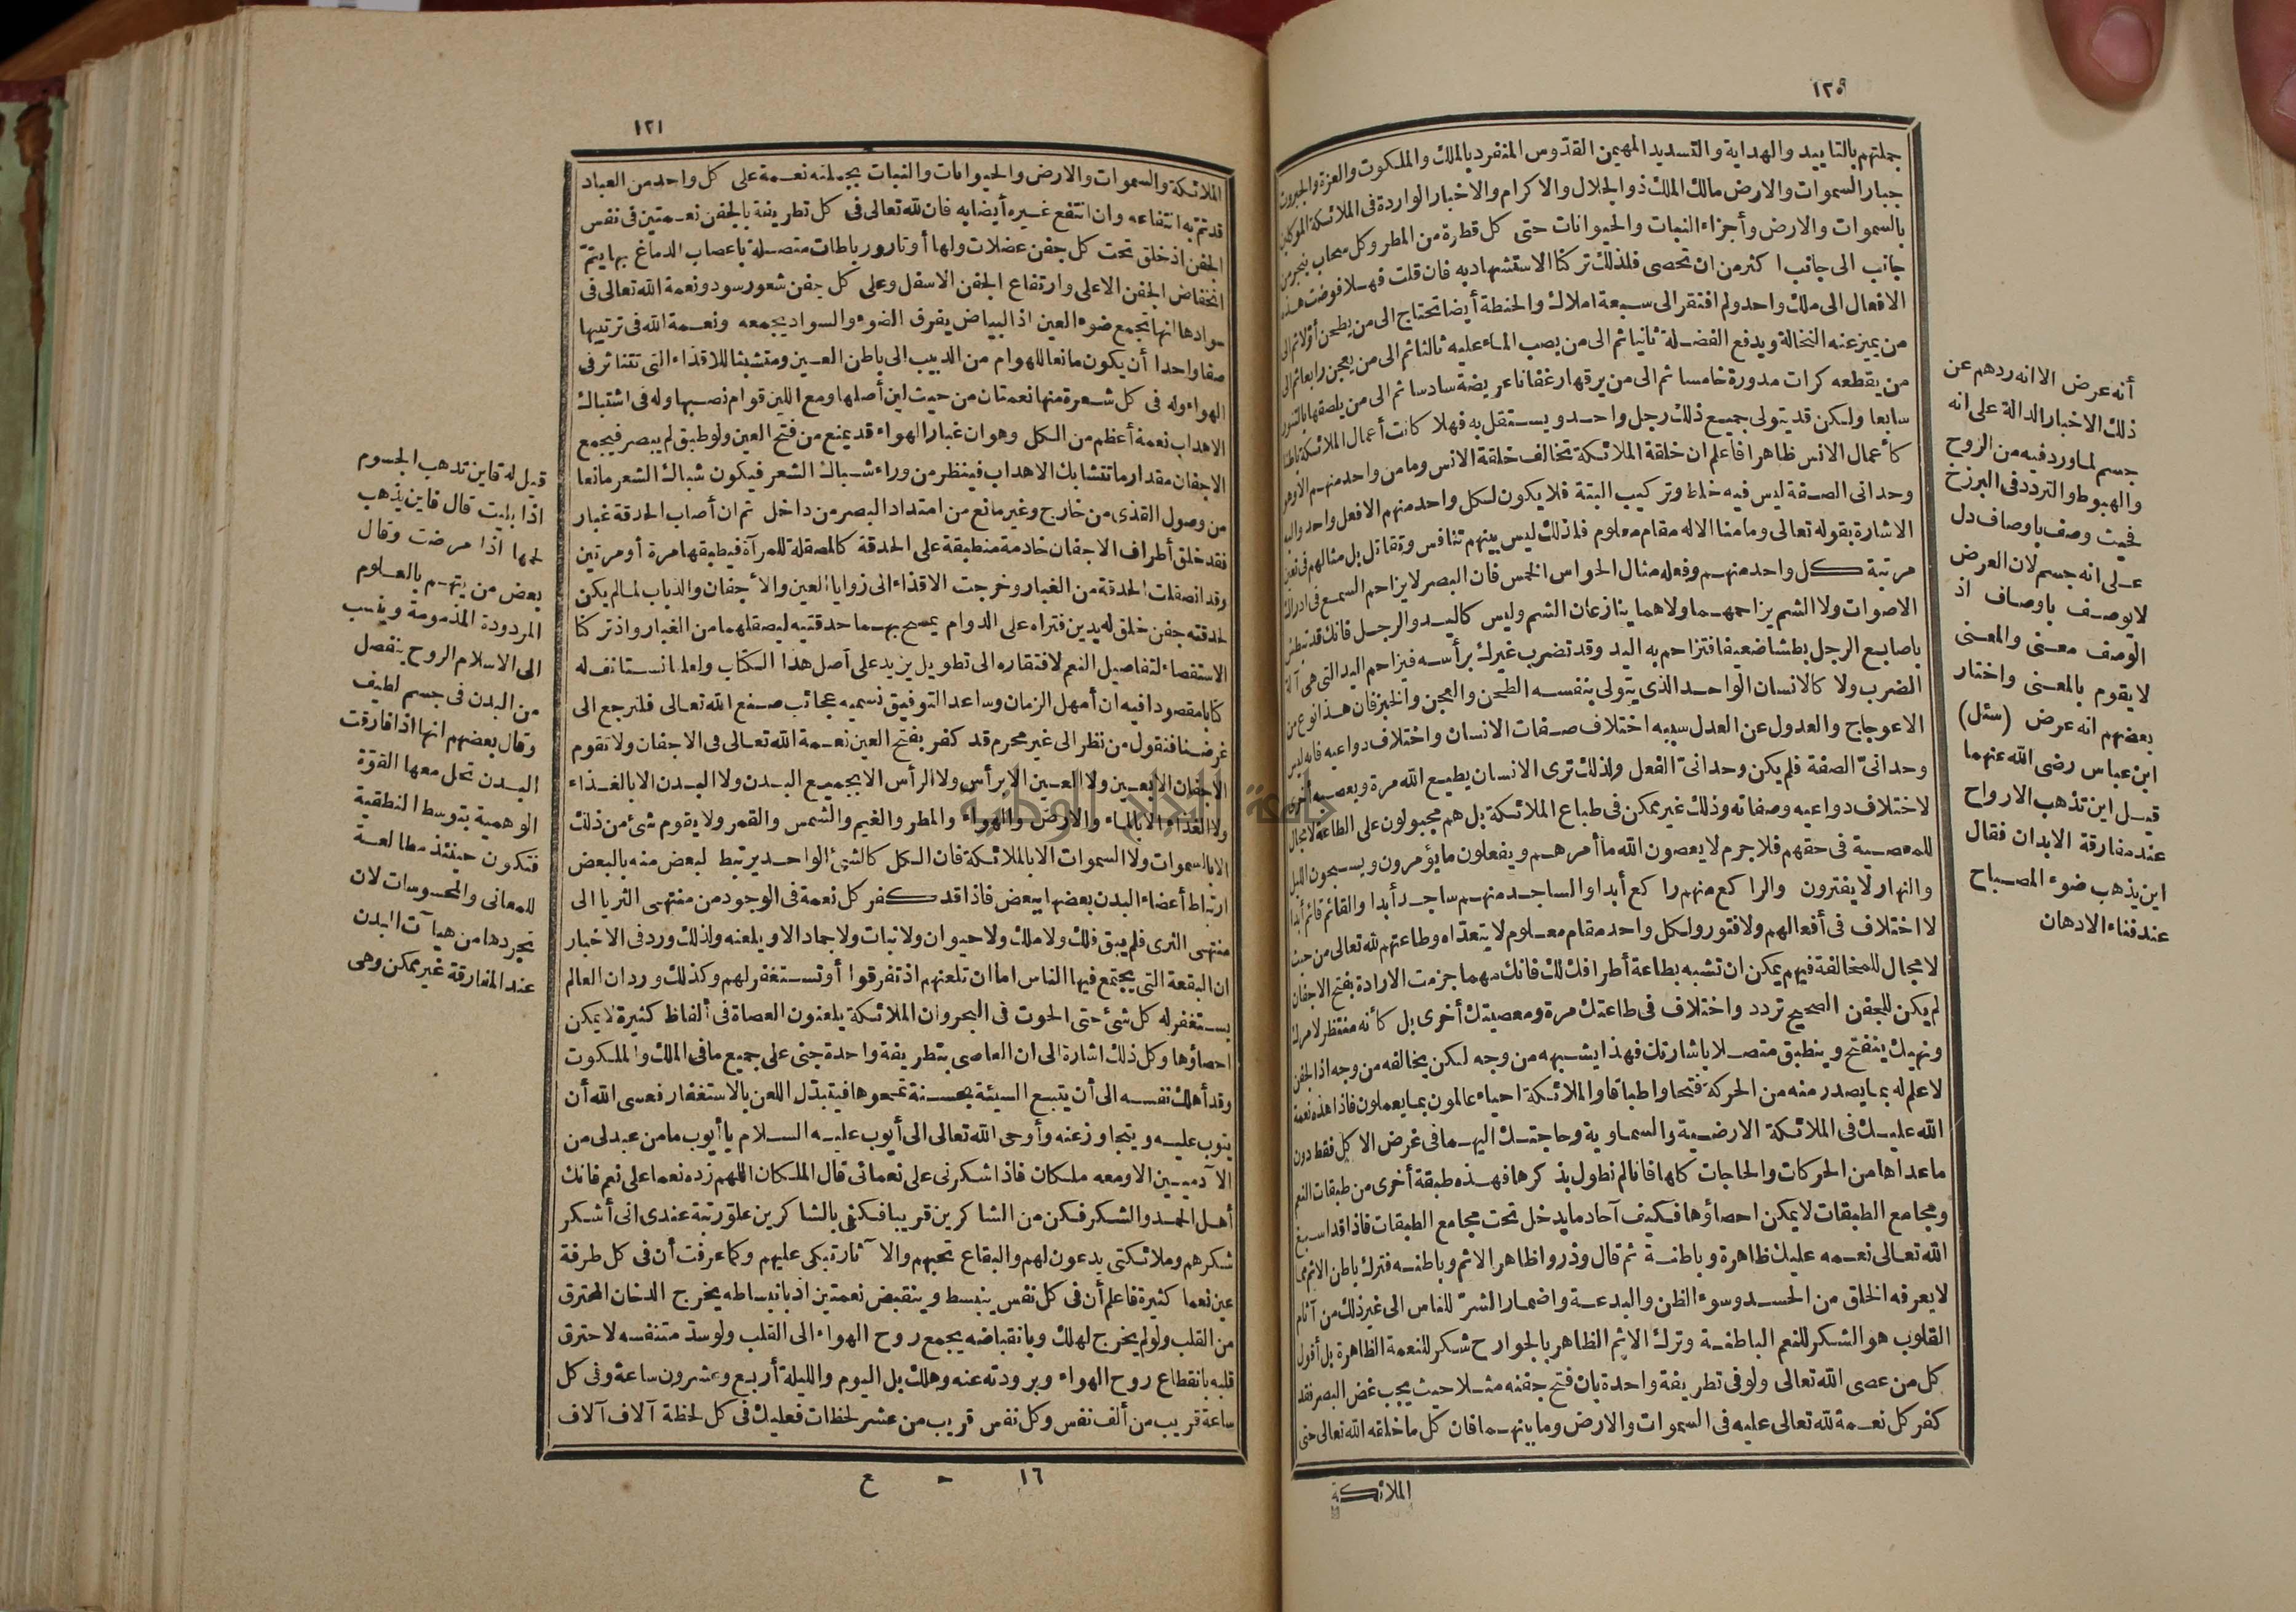 ١٢٠
جملتهم بالتأييد والهداية والتسديد المهيمن القدّوس المنفرد بالملك والملكوت والعزة والجبروت
جبار السموات والارض مالك الملك ذو الجلال والاكرام والاخبار الواردة فى الملائكة الموكلين
بالسموات والارض وأجزاء النبات والحيوانات حتى كل قطرة من المطر وكل سحاب ينجر من
جانب الى جانب اكثر من ان تحصى فلذلك تركنا الاستشهاد به فان قلت فهلا فوضت هذه
الافعال الى ملك واحد ولم افتقر الى سبعة املاك والحنطة أيضا تحتاج الى من يطحن أوّلا ثم الى
من يميز عنه النخالة ويدفع الفضلة ثانيا ثم الى من يصب الماء عليه ثالثا ثم الى من يعجن رابعا ثم الى
من يقطعه كرات مدورة خامسا ثم الى من يرقها رغفانا عريضة سادسا ثم الى من يلصقها بالتنور
سابعا ولكن قد يتولى جميع ذلك رجل واحد ويستقل به فهلا كانت أعمال الملائكة باطنا
كأعمال الانس ظاهرا فاعلم ان خلقة الملائكة تخالف خلقة الانس وما من واحد منهم الا وهو
وحدانى الصفة ليس فيه خلط وتركيب البتة فلا يكون لكل واحد منهم الا فعل واحد واليه
الاشارة بقوله تعالى وما منا الا له مقام معلوم فلذلك ليس بينهم تنافس وتقاتل بل مثالهم فى تعين
مرتبة كل واحد منهم وفعله مثال الحواس الخمس فان البصر لا يزاحم السمع فى ادراك
الاصوات ولا الشم يزاحمهما ولا هما ينازعان الشم وليس كاليد والرجل فانك قد تبطش
باصابع الرجل بطشا ضعيفا فتزاحم به اليد وقد تضرب غيرك برأسه فتزاحم اليد التى هى آلة
الضرب ولا كالانسان الواحد الذى يتولى بنفسه الطحن والعجن والخبز فان هذا نوع من
الاعوجاج والعدول عن العدل سببه اختلاف صفات الانسان واختلاف دواعيه فانه ليس
وحدانىّ الصفة فلم يكن وحدانىّ الفعل ولذلك ترى الانسان يطيع الله مرة ويعصيه أخرى
لاختلاف دواعيه وصفاته وذلك غير ممكن فى طباع الملائكة بل هم مجبولون على الطاعة لا مجال
للمعصية فى حقهم فلا جرم لا يعصون الله ما أمرهم ويفعلون ما يؤمرون ويسبحون الليل
والنهار لا يفترون والراكع منهم راكع أبدا والساجد منهم ساجد أبدا والقائم قائم أبدا
لا اختلاف فى أفعالهم ولا فتور ولكل واحد مقام معلوم لا يتعدّاه وطاعتهم لله تعالى من حيث
لا مجال للمخالفة فيهم يمكن ان تشبه بطاعة أطرافك لك فانك مهما جزمت الارادة بفتح الاجفان
لم يكن للجفن الصحيح تردد واختلاف فى طاعتك مرة ومعصيتك أخرى بل كأنه منتظر لامرك
ونهيك ينفتح وينطبق متصلا باشارتك فهذا يشبهه من وجه لكن يخالفه من وجه اذ الجفن
لا علم له بما يصدر منه من الحركة فتحا واطباقا والملائكة احياء عالمون بما يعملون فاذا هذه نعمة
الله عليك فى الملائكة الارضية والسماوية وحاجتك اليهما فى غرض الاكل فقط دون
ما عداها من الحركات والحاجات كلها فانا لم نطول بذكرها فهذه طبقة أخرى من طبقات النعم
ومجامع الطبقات لا يمكن احصاؤها فكيف آحاد ما يدخل تحت مجامع الطبقات فاذا قد اسبغ
الله تعالى نعمه عليك ظاهرة وباطنة ثم قال وذروا ظاهر الاثم وباطنه فترك باطن الاثم مما
لا يعرفه الخلق من الحسد وسوء الظن والبدعة واضمار الشرّ للناس الى غير ذلك من آثام
القلوب هو الشكر للنعم الباطنة وترك الاثم الظاهر بالجوارح شكر للنعمة الظاهرة بل أقول
كل من عصى الله تعالى ولو فى تطريفة واحدة بان فتح جفنه مثلا حيث يجب غض البصر فقد
كفر كل نعمة لله تعالى عليه فى السموات والارض وما بينهما فان كل ما خلقه الله تعالى حتى
الملائكة
أنه عرض الا انه ردهم عن
ذلك الاخبار الدالة على انه
جسم لما ورد فيه من الزوح
والهبوط والتردد فى البرزخ
فحيث وصف باوصاف دل
على انه جسم لان العرض
لا يوصف باوصاف اذ
الوصف معنى والمعنى
لا يقوم بالمعنى واختار
بعضهم انه عرض (سئل)
ابن عباس رضى الله عنهما
قيل اين تذهب الارواح
عند مفارقة الابدان فقال
اين يذهب ضوء المصباح
عند فناء الادهان
١٢١
الملائكة والسموات والارض والحيوانات والنبات بجملته نعمة على كل واحد من العباد
قد تتم به انتفاعه وان انتفع غيره أيضا به فان لله تعالى فى كل تطريفة بالجفن نعمتين فى نفس
الجفن اذ خلق تحت كل جفن عضلات ولها أوتار ورباطات متصلة باعصاب الدماغ بها يتمّ
انخفاض الجفن الاعلى وارتفاع الجفن الاسفل وعلى كل جفن شعور سود ونعمة الله تعالى فى
سوادها انها تجمع ضوء العين اذ البياض يفرق الضوء والسواد يجمعه ونعمة الله فى ترتيبها
صفا واحدا أن يكون مانعا للهوام من الدبيب الى باطن العين ومتشبثا للاقذاء التى تتناثر فى
الهواء وله فى كل شعرة منها نعمتان من حيث لين أصلها ومع اللين قوام نصبها وله فى اشتباك
الاهداب نعمة أعظم من الكل وهو ان غبار الهواء قد يمنع من فتح العين ولو طبق لم يبصر فيجمع
الاجفان مقدار ما تتشابك الاهداب فينظر من وراء شباك الشعر فيكون شباك الشعر مانعا
من وصول القذى من خارج وغير مانع من امتداد البصر من داخل ثم ان أصاب الحدقة غبار
فقد خلق أطراف الاجفان خادمة منطبقة على الحدقة كالمصقلة للمرآة فيطبقها مرة أو مرتين
وقد انصقلت الحدقة من الغبار وخرجت الاقذاء الى زوايا العين والأجفان والذباب لما لم يكن
لحدقته جفن خلق له يدين فتراه على الدوام يمسح بهما حدقتيه ليصقلهما من الغبار واذ تركنا
الاستقصاء لتفاصيل النعم لافتقاره الى تطويل يزيد على أصل هذا الكتاب ولعلنا نستأنف له
كتابا مقصودا فيه ان أمهل الزمان وساعد التوفيق نسميه عجائب صنع الله تعالى فلنرجع الى
غرضنا فنقول من نظر الى غير محرم قد كفر بفتح العين نعمة الله تعالى فى الاجفان ولا تقوم
الاجفان الا بعين ولا العين الا برأس ولا الرأس الا بجميع البدن ولا البدن الا بالغذاء
ولا الغذاء الا بالماء والارض والهواء والمطر والغيم والشمس والقمر ولا يقوم شئ من ذلك
الا بالسموات ولا السموات الا بالملائكة فان الكل كالشئ الواحد يرتبط لبعض منه بالبعض
ارتباط أعضاء البدن بعضها ببعض فاذا قد كفر كل نعمة فى الوجود من منتهى الثريا الى
منتهى الثرى فلم يبق فلك ولا ملك ولا حيوان ولا نبات ولا جماد الا ويلعنه ولذلك ورد فى الاخبار
ان البقعة التى يجتمع فيها الناس اما ان تلعنهم اذ تفرقوا أو تستغفر لهم وكذلك ورد ان العالم
يستغفر له كل شئ حتى الحوت فى البحر وان الملائكة يلعنون العصاة فى ألفاظ كثيرة لا يمكن
احصاؤها وكل ذلك اشارة الى ان العاصى بتطريفة واحدة جنى على جميع ما فى الملك والملكوت
وقد أهلك نفسه الى أن يتبع السيئة بحسنة تمحوها فيتبدّل اللعن بالاستغفار فعسى الله أن
يتوب عليه ويتجاوز عنه وأوحى الله تعالى الى أيوب عليه السلام يا أيوب ما من عبد لى من
الآدميين الا ومعه ملكان فاذا شكرنى على نعمائى قال الملكان اللهم زده نعما على نعم فانك
أهل الحمد والشكر فكن من الشاكرين قريبا فكفى بالشاكرين علوّ رتبة عندى انى أشكر
شكرهم وملائكتى يدعون لهم والبقاع تحبهم والآثار تبكى عليهم وكما عرفت أن فى كل طرفة
عين نعما كثيرة فاعلم أن فى كل نفس ينبسط وينقبض نعمتين اذ بانبساطه يخرج الدخان المحترق
من القلب ولو لم يخرج لهلك وبانقباضه يجمع روح الهواء الى القلب ولو سدّ متنفسه لاحترق
قلبه بانقطاع روح الهواء وبرودته عنه وهلك بل اليوم والليلة أربع وعشرون ساعة وفى كل
ساعة قريب من ألف نفس وكل نفس قريب من عشر لحظات فعليك فى كل لحظة آلاف آلاف
١٦ - ع
قيل له فاين تذهب الجسوم
اذا بليت قال فاين يذهب
لحمها اذا مرضت وقال
بعض من يتهم بالعلوم
المردودة المذمومة وينسب
الى الاسلام الروح ينفصل
من البدن فى جسم لطيف
وقال بعضهم انها اذا فارقت
البدن تحل معها القوّة
الوهمية بتوسط النطقية
فتكون حينئذ مطالعة
للمعانى والمحسوسات لان
تجردها من هيآت البدن
عند المفارقة غير ممكن وهى